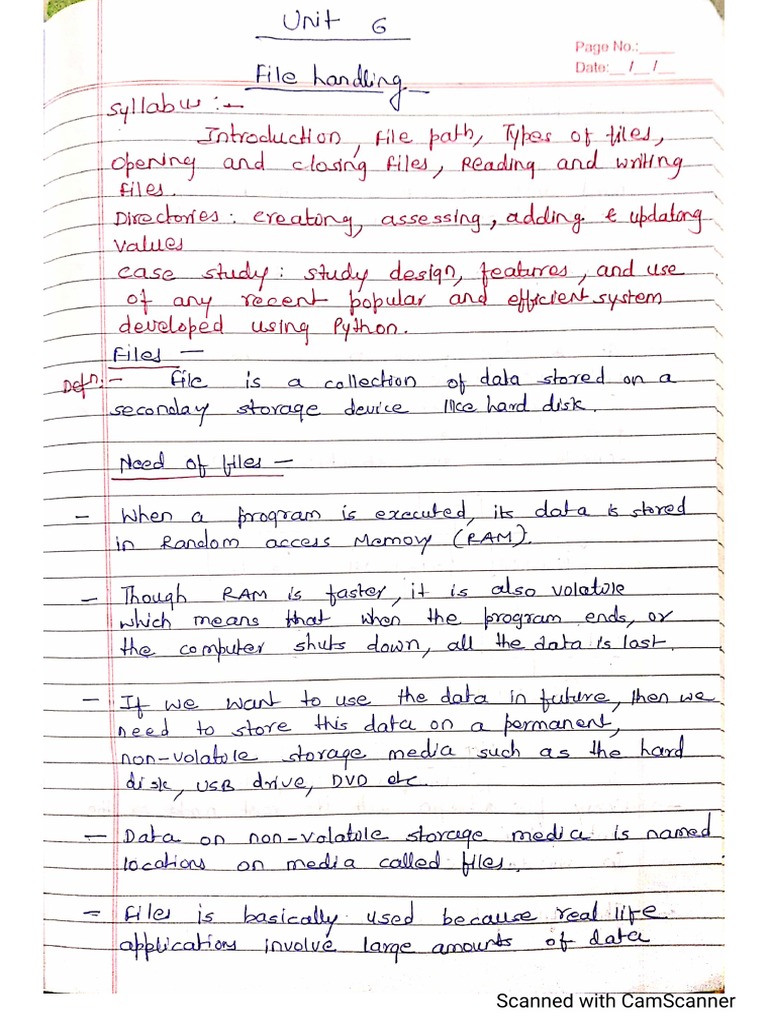 Unit 6
Page No.:
Date: / /
File handling
Syllabus :-
Introduction, File path, Types of files,
Opening and closing files, Reading and writing
files.
Directories: creating, assessing, adding & updating
values
case study: study design, features, and use
of any recent popular and efficient system
developed using Python.
Files -
Defn:- File is a collection of data stored on a
seconday storage device like hard disk.
Need of files -
- When a program is executed, its data is stored
in Random access Memory (RAM).
- Though RAM is faster, it is also volatile
which means that when the program ends, or
the computer shuts down, all the data is lost.
- If we want to use the data in future, then we
need to store this data on a permanent,
non-volatile storage media such as the hard
disk, USB drive, DVD etc.
- Data on non-volatile storage media is named
locations on media called files.
- Files is basically used because real life
applications involve large amounts of data
Scanned with CamScanner